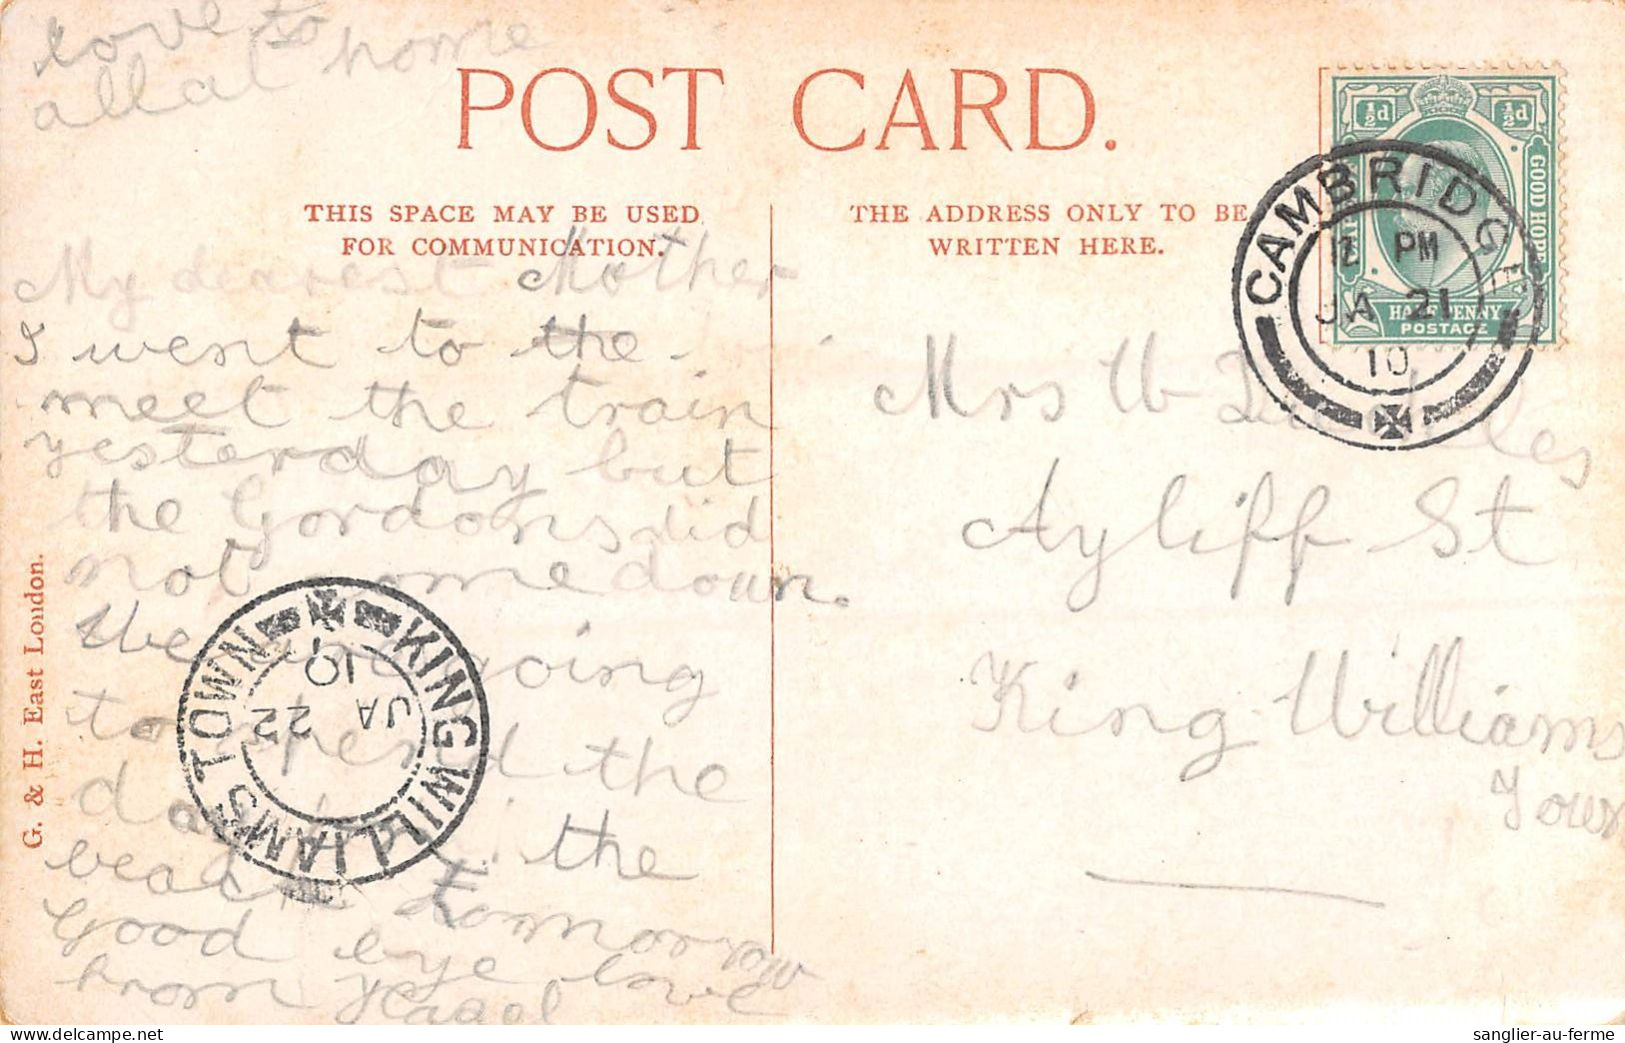 love to
all at home
POST CARD.
THIS SPACE MAY BE USED
FOR COMMUNICATION.
THE ADDRESS ONLY TO BE
WRITTEN HERE.
My dearest Mother
I went to the
meet the train
yesterday but
the Gordons did
not come down.
We are going
to spend the
day at the
beach tomorrow
Good bye love
from Hazel
G. & H. East London.
KING WILLIAM'S TOWN
JA 22
10
½d ½d
GOOD HOPE
HALF PENNY
POSTAGE
CAMBRIDGE
12 PM
JA 21
10
Mrs W
Ayliff St
King Williams
Town
sanglier-au-ferme